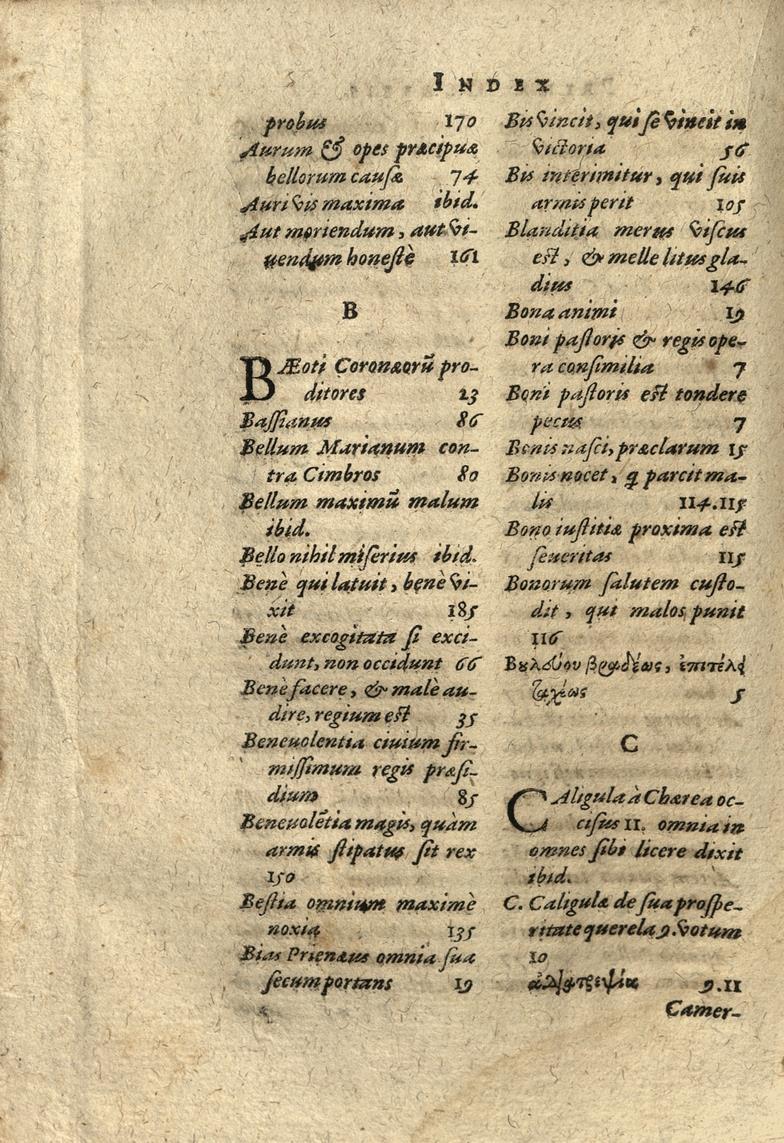 INDEX
probus 170
Aurum & opes præcipuæ
bellorum causæ 74
Auri vis maxima ibid.
Aut moriendum, aut vi-
uendum honestè 161
B
BÆoti Coronæorũ pro-
ditores 23
Bassianus 86
Bellum Marianum con-
tra Cimbros 80
Bellum maximũ malum
ibid.
Bello nihil miserius ibid.
Benè qui latuit, benè vi-
xit 185
Benè excogitata si exci-
dunt, non occidunt 66
Benè facere, & malè au-
dire, regium est 35
Beneuolentia ciuium fir-
missimum regis præsi-
dium 85
Beneuolẽtia magis, quàm
armis stipatus sit rex
150
Bestia omnium maximè
noxia 135
Bias Prienæus omnia sua
secum portans 19
Bis vincit, qui se vincit in
victoria 56
Bis interimitur, qui suis
armis perit 105
Blanditia merus viscus
est, & melle litus gla-
dius 146
Bona animi 19
Boni pastoris & regis ope-
ra consimilia 7
Boni pastoris est tondere
pecus 7
Bonis nasci, præclarum 15
Bonis nocet, q parcit ma-
lis 114.115
Bono iustitiæ proxima est
seueritas 115
Bonorum salutem custo-
dit, qui malos punit
116
Βουλεύου βραδέως, ἐπιτέλει
ταχέως 5
C
CAligula à Chærea oc-
cisus 11. omnia in
omnes sibi licere dixit
ibid.
C. Caligulæ de sua prospe-
ritate querela 9. votum
10
9.11
Camer-